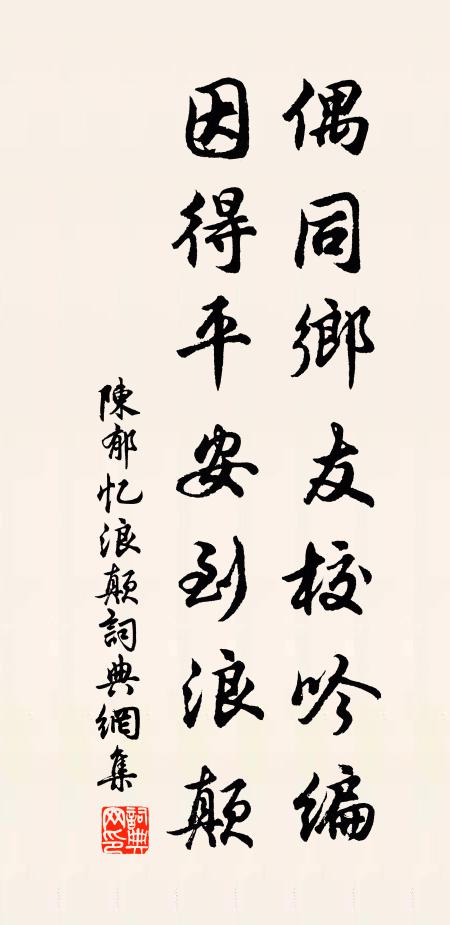 偶同鄉友校吟編
因得平安到浪顛
陳郁忆浪顛詞典網集
詞典网印